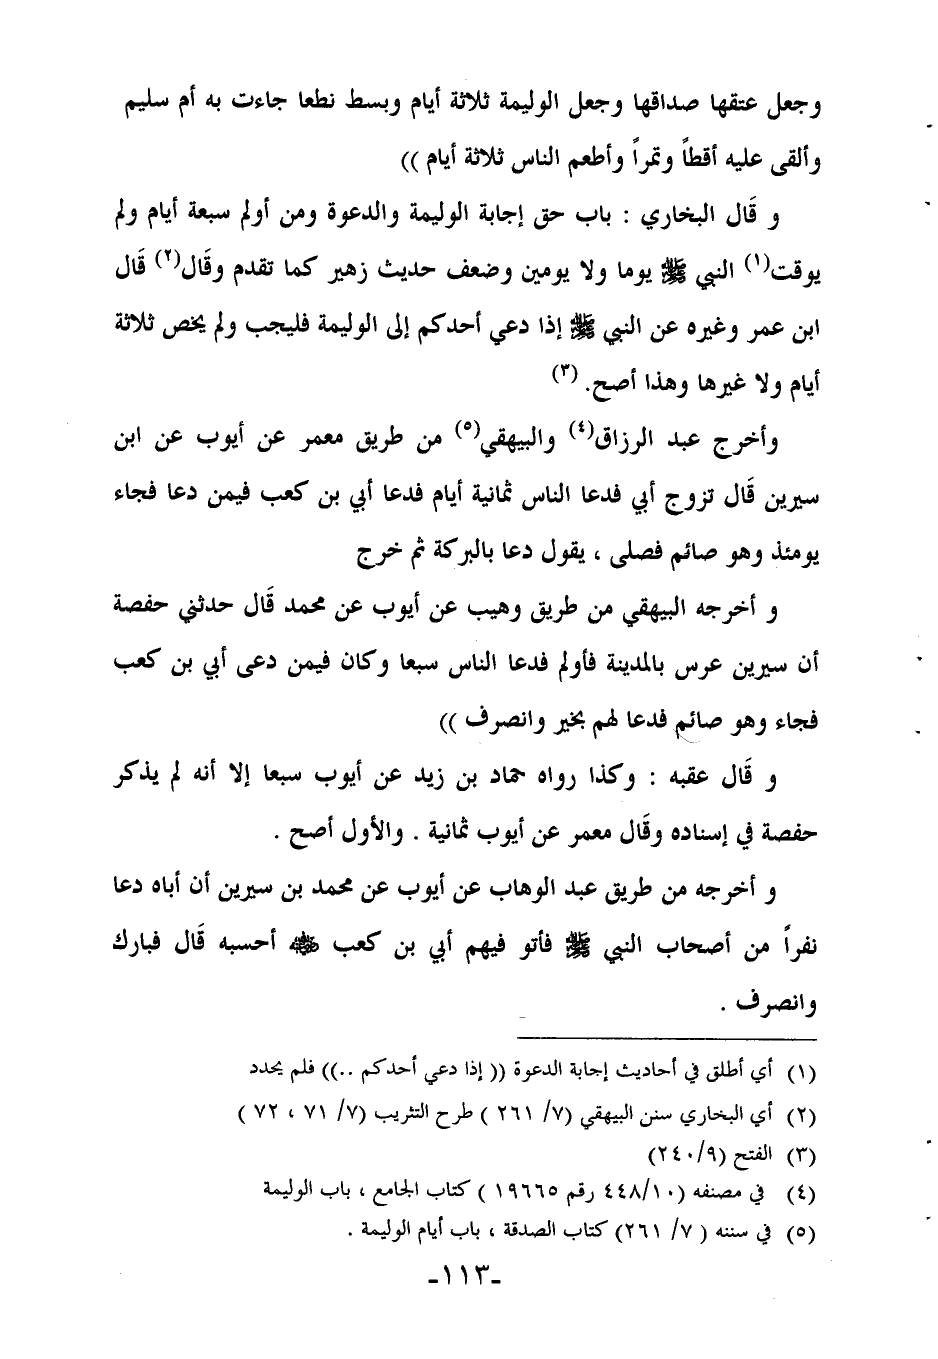 وجعل عتقها صداقها وجعل الوليمة ثلاثة أيام وبسط نطعا جاءت به أم سليم
وألقى عليه أقطاً وتمراً وأطعم الناس ثلاثة أيام ))
و قَال البخاري : باب حق إجابة الوليمة والدعوة ومن أولم سبعة أيام ولم
يوقت(١) النبي ﷺ يوما ولا يومين وضعف حديث زهير كما تقدم وقَال(٢) قَال
ابن عمر وغيره عن النبي ﷺ إذا دعي أحدكم إلى الوليمة فليجب ولم يخص ثلاثة
أيام ولا غيرها وهذا أصح. (٣)
وأخرج عبد الرزاق(٤) والبيهقي(٥) من طريق معمر عن أيوب عن ابن
سيرين قَال تزوج أبي فدعا الناس ثمانية أيام فدعا أبي بن كعب فيمن دعا فجاء
يومئذ وهو صائم فصلى ، يقول دعا بالبركة ثم خرج
و أخرجه البيهقي من طريق وهيب عن أيوب عن محمد قَال حدثني حفصة
أن سيرين عرس بالمدينة فأولم فدعا الناس سبعا وكان فيمن دعى أبي بن كعب
فجاء وهو صائم فدعا لهم بخير وانصرف ))
و قَال عقبه : وكذا رواه حماد بن زيد عن أيوب سبعا إلا أنه لم يذكر
حفصة في إسناده وقَال معمر عن أيوب ثمانية . والأول أصح .
و أخرجه من طريق عبد الوهاب عن أيوب عن محمد بن سيرين أن أباه دعا
نفراً من أصحاب النبي ﷺ فأتو فيهم أبي بن كعب رضي الله عنه أحسبه قَال فبارك
وانصرف .
(١) أي أطلق في أحاديث إجابة الدعوة (( إذا دعي أحدكم ..)) فلم يحدد
(٢) أي البخاري سنن البيهقي (٧/ ٢٦١ ) طرح التثريب (٧/ ٧١ ، ٧٢ )
(٣) الفتح (٢٤٠/٩)
(٤) في مصنفه (٤٤٨/١٠ رقم ١٩٦٦٥ ) كتاب الجامع ، باب الوليمة
(٥) في سننه ( ٧/ ٢٦١) كتاب الصدقة ، باب أيام الوليمة .
-١١٣-